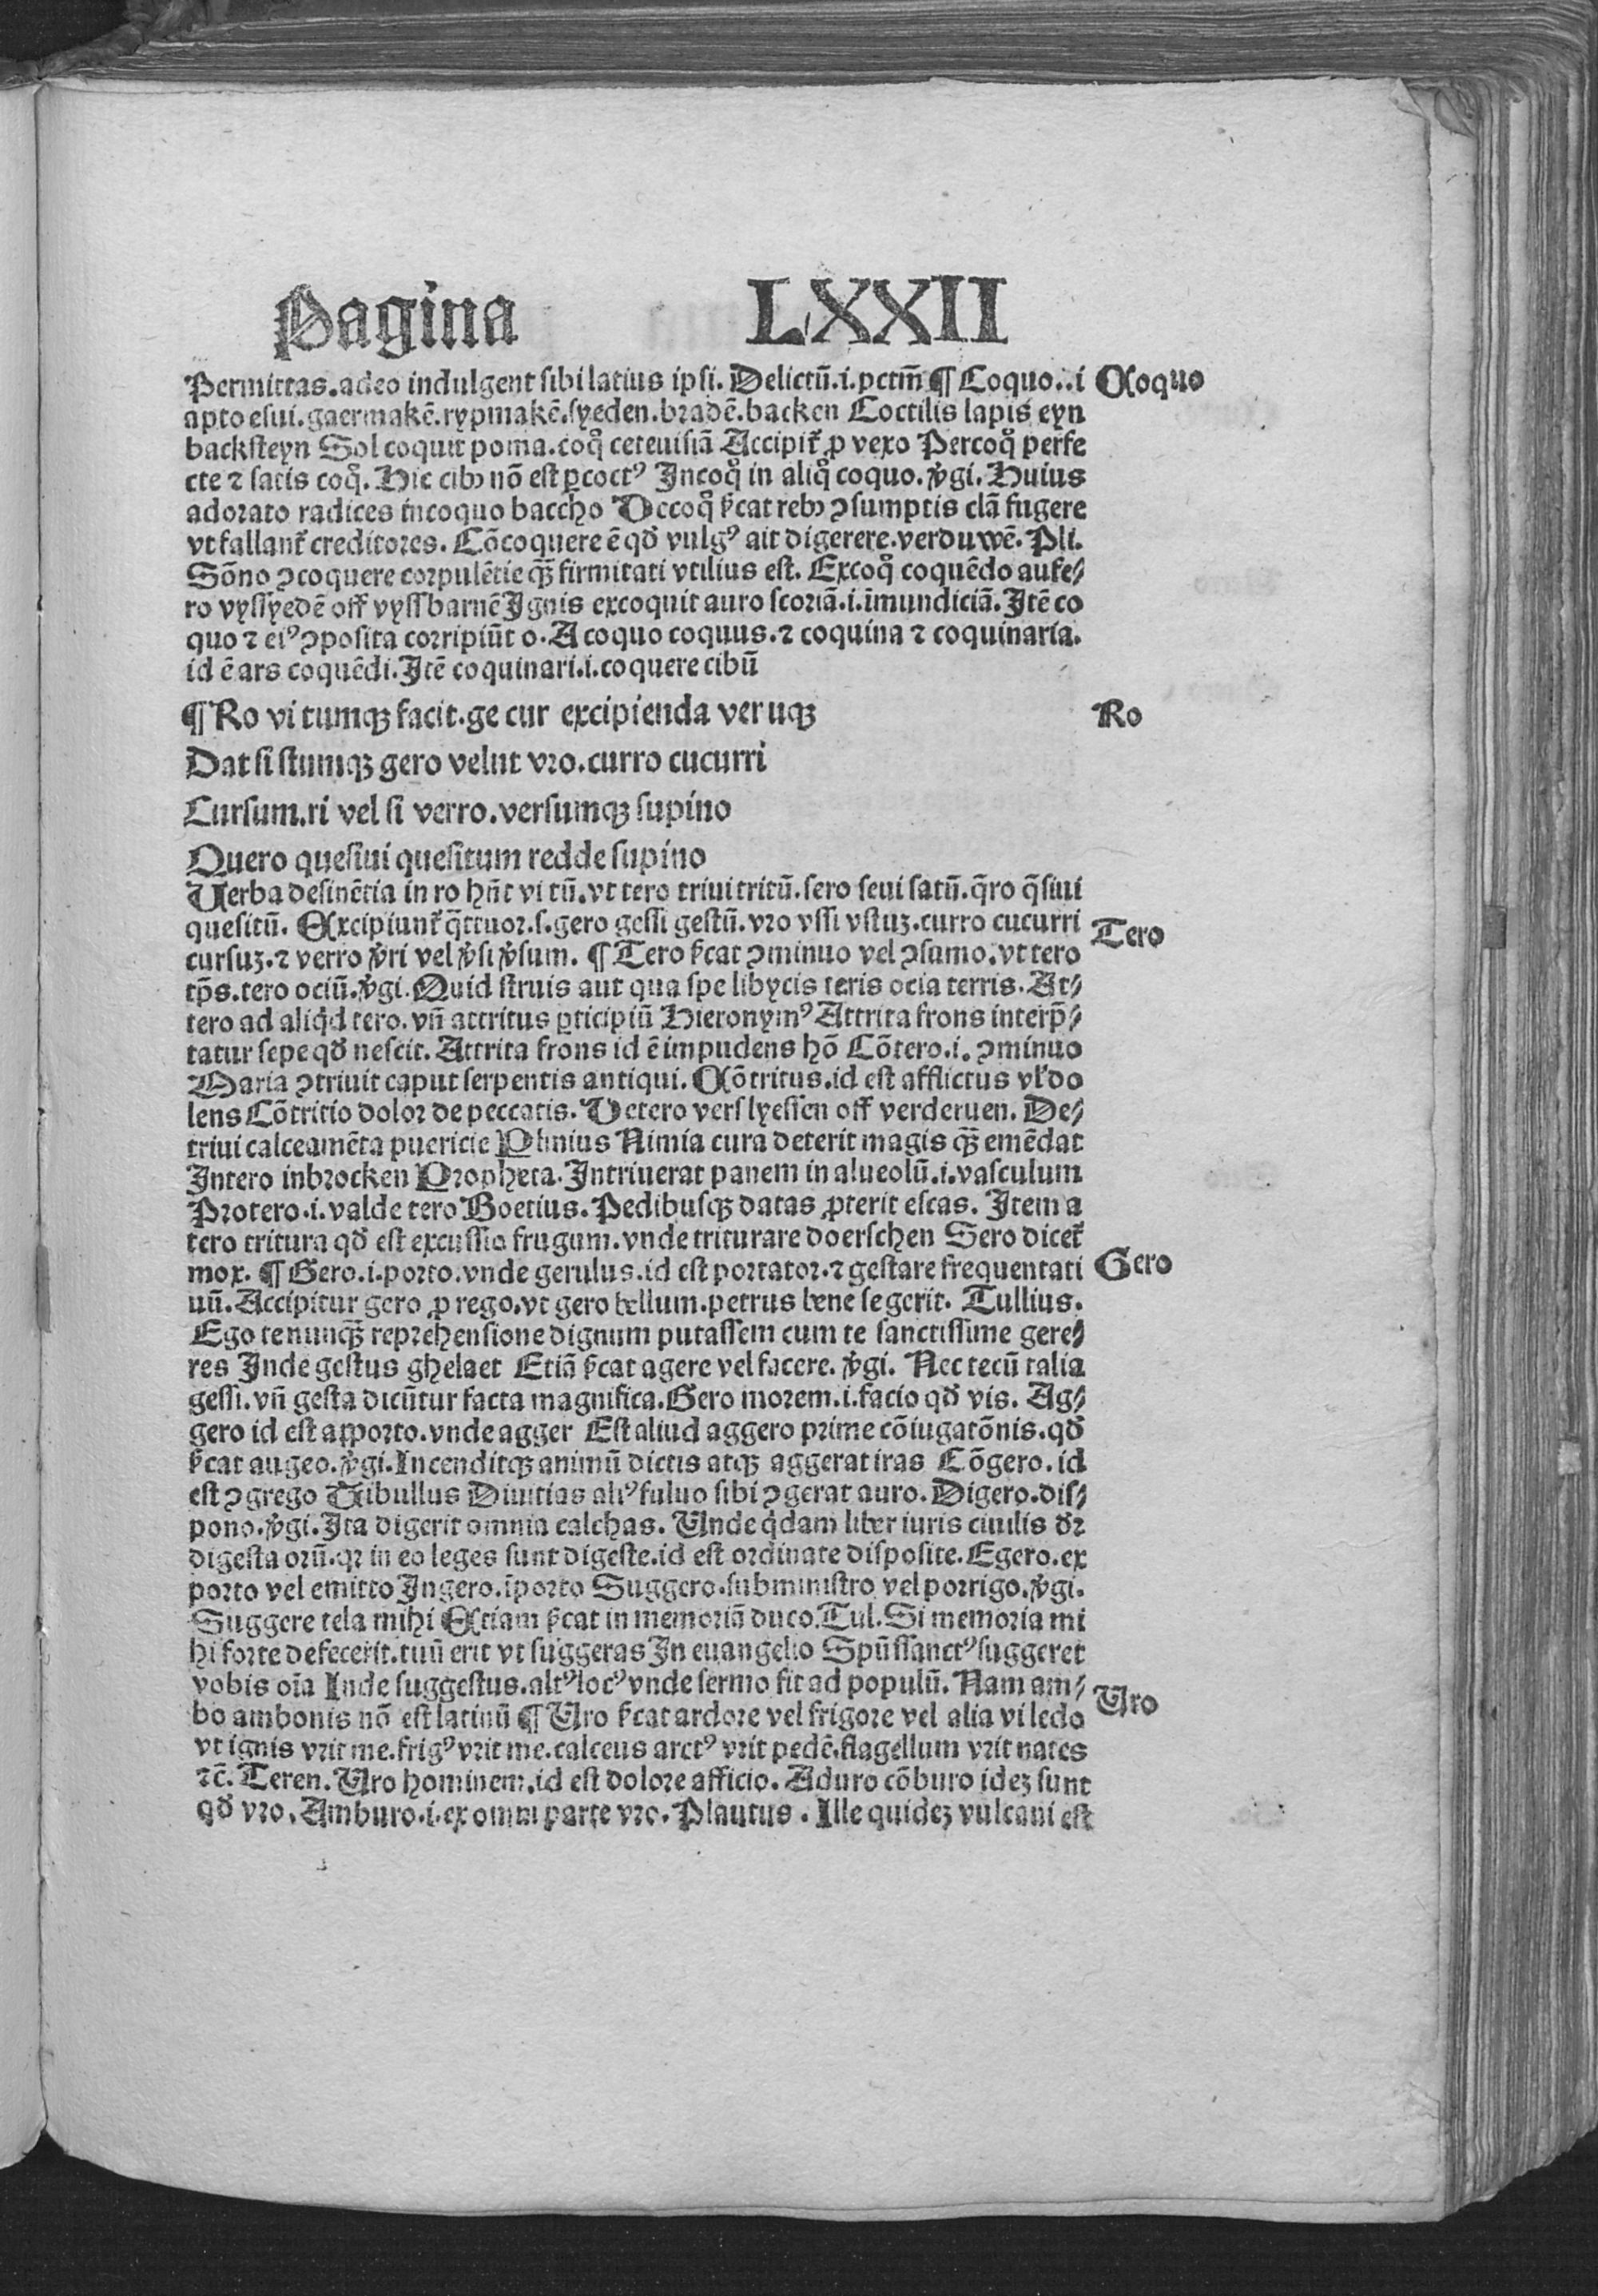 Pagina LXXII
Permittas.adeo indulgent sibi latius ipsi. Delictū.i.pctm̄ ¶ Coquo..i
Coquo
apto esui.gaermakē.rypmakē.syeden.bradē.backen Coctilis lapis eyn
backsteyn Sol coquit poma.coqͦ ceteuisiā Accipit᷑ ꝓ vexo Percoqͦ perfe
cte ⁊ satis coqͦ. Hic cibꝰ nō est ꝑcoctꝰ Incoqͦ in aliqͦ coquo. v̓gi. Huius
adorato radices incoquo baccho Decoqͦ s̓cat rebꝰ ꝯsumptis clā fugere
vt fallant᷑ creditores. Cōcoquere ē qđ vulgꝰ ait digerere.verduwē. Pli.
Sōno ꝯcoquere corpulētie qꝫ̄ firmitati vtilius est. Excoqͦ coquēdo aufe⸗
ro vyssyedē off vyssbarnē Ignis excoquit auro scoriā.i.īmundiciā. Itē co
quo ⁊ eiꝰ ꝯposita corripiūt o. A coquo coquus. ⁊ coquina ⁊ coquinaria.
id ē ars coquēdi. Itē coquinari.i.coquere cibū
¶ Ro vi tumqꝫ facit.ge cur excipienda veruqꝫ
Ro
Dat si stumqꝫ gero velut vro.curro cucurri
Cursum.ri vel si verro.versumqꝫ supino
Quero quesiui quesitum redde supino
Uerba desinētia in ro hn̄t vi tū.vt tero triui tritū.sero seui satū.q̄ro q̄siui
quesitū. Excipiunt᷑ q̄ttuor.s.gero gessi gestū.vro vssi vstuꝫ.curro cucurri
Tero
cursuꝫ.⁊ verro v̓ri vel v̓si v̓sum. ¶ Tero s̓cat ꝯminuo vel ꝯsumo.vt tero
tp̄s.tero ociū.v̓gi. Quid struis aut qua spe libycis teris ocia terris. At⸗
tero ad aliqͥd tero.vn̄ attritus ꝑticipiū Hieronymꝰ Attrita frons interp̄⸗
tatur sepe qđ nescit. Attrita frons id ē impudens hō Cōtero.i. ꝯminuo
Maria ꝯtriuit caput serpentis antiqui. Cōtritus.id est afflictus vl̓ do
lens Cōtritio dolor de peccatis. Detero verslyessen off verderuen. De⸗
triui calceamēta puericie Plinius Nimia cura deterit magis qꝫ̄ emēdat
Intero inbrocken Propheta. Intriuerat panem in alueolū.i.vasculum
Protero.i.valde tero Boetius. Pedibusqꝫ datas ꝓterit escas. Item a
tero tritura qđ est excussio frugum.vnde triturare doerschen Sero dicet᷑
mox. ¶ Gero.i.porto.vnde gerulus.id est portator.⁊ gestare frequentati
Gero
uū. Accipitur gero ꝓ rego.vt gero bellum.petrus bene se gerit. Tullius.
Ego te nunqꝫ̄ reprehensione dignum putassem cum te sanctissime gere⸗
res Inde gestus ghelaet Etiā s̓cat agere vel facere. v̓gi. Nec tecū talia
gessi.vn̄ gesta dicūtur facta magnifica.Gero morem.i.facio qđ vis. Ag⸗
gero id est apporto.vnde agger Est aliud aggero prime cōiugatōnis.qđ
s̓cat augeo.v̓gi.Incenditqꝫ animū dictis atqꝫ aggerat iras Cōgero.id
est ꝯgrego Tibullus Diuitias aliꝰ fuluo sibi ꝯgerat auro. Digero.dis⸗
pono.v̓gi.Ita digerit omnia calchas. Unde qͥdam liber iuris ciuilis dr̄
digesta orū.qr in eo leges sunt digeste.id est ordinate disposite.Egero.ex
porto vel emitto Ingero.īporto Suggero.subministro vel porrigo.v̓gi.
Suggere tela mihi Etiam s̓cat in memoriā duco.Tul.Si memoria mi
hi forte defecerit.tuū erit vt suggeras In euangelio Spūssanctꝰ suggeret
vobis oīa Inde suggestus.altꝰ locꝰ vnde sermo fit ad populū. Nam am⸗
bo ambonis nō est latinū ¶ Uro s̓cat ardore vel frigore vel alia vi ledo
Uro
vt ignis vrit me.frigꝰ vrit me.calceus arctꝰ vrit pedē.flagellum vrit nates
⁊c̄. Teren. Uro hominem.id est dolore afficio. Aduro cōburo ideꝫ sunt
qđ vro. Amburo.i.ex omni parte vro. Plautus. Ille quideꝫ vulcani est